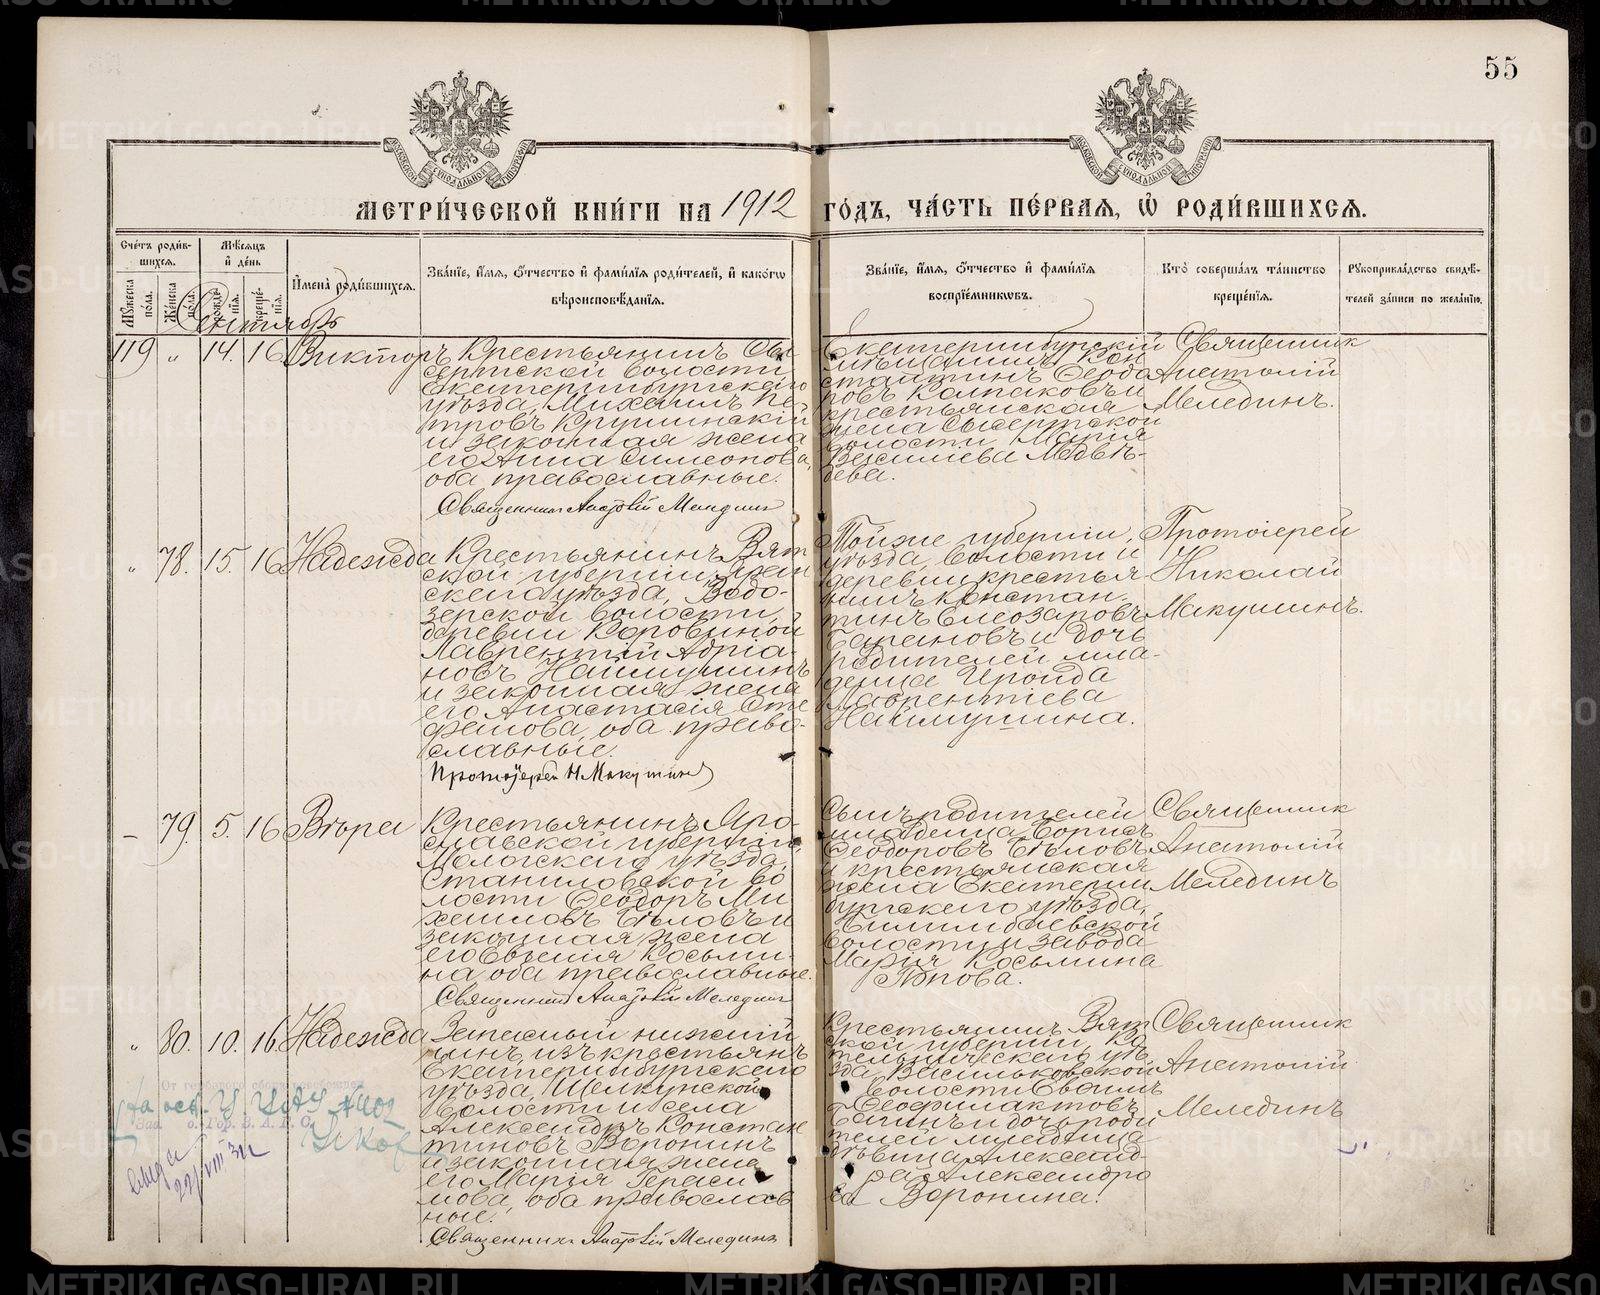 55
МЕТРИ́ЧЕСКОЙ КНИ́ГИ НА 1912 ГО́ДЪ, ЧА́СТЬ ПЕ́РВАЯ, Ѡ РОДИ́ВШИХСЯ.
Сче́тъ роди́в-
шихся.
Мѣ́сяцъ
и де́нь
Му́жеска по́ла.
Же́нска по́ла.
рожде́-
нія.
креще́-
нія.
Имена̀ роди́вшихся.
Зва́ніе, и́мя, о́тчество и фами́лія роди́телей, и како́гѡ
вѣроисповѣ́данія.
Зва́ніе, и́мя, о́тчество и фами́лія
воспріе́мниковъ.
Кто̀ соверша́лъ та́инство
креще́нія.
Рукоприкла́дство свидѣ́-
телей за́писи по жела́нію.
Сентябрь
119 „ 14. 16 Викторъ
Крестьянинъ Сы-
сертской волости
Екатеринбургскаго
уѣзда, Михаилъ Пе-
тровъ Крушинскій
и законная жена
его Анна Симеонова,
оба православные.
Священникъ Анатолій Мелединъ
Екатеринбургскій
мѣщанинъ Кон
стантинъ Феодо
ровъ Колпаковъ и
крестьянская
жена Сысертской
волости Марія
Васильева Медвѣ-
дева.
Священник
Анатолій
Мелединъ.
„ 78. 15. 16 Надежда
Крестьянинъ Вят
ской губерніи, Яран
скаго уѣзда, Водо-
зерской волости,
деревни Коровиной
Лаврентій Адріа-
новъ Наймушинъ
и законная жена
его Анастасія Сте
фанова, оба право-
славные.
Протоіерей Н Макушинъ
Тойже губерніи,
уѣзда, волости и
деревни крестья
нинъ Констан-
тинъ Елеозаровъ
Бариновъ и дочь
родителей мла-
деница Ироида
Лаврентіева
Наймушина.
Протоіерей
Николай
Макушинъ.
– 79. 5. 16 Вѣра
Крестьянинъ Яро-
славской губерніи,
Мологскаго уѣзда,
Станиловской во
лости Феодоръ Ми
хаиловъ Бѣловъ и
законная жена
его Евгенія Косьми-
на, оба православные.
Священникъ Анатолій Мелединъ
Сынъ родителей
младенецъ Борисъ
Феодоровъ Бѣловъ
и крестьянская
жена Екатерин
бургскаго уѣзда,
Билимбаевской
волости и завода
Марія Косьмина
Попова.
Священник
Анатолій
Мелединъ
„ 80. 10. 16. Надежда
Запасный нижній
чинъ изъ крестьянъ
Екатеринбургскаго
уѣзда, Щелкунской
волости и села
Александръ Констан
тиновъ Воронинъ
и законная жена
его Марія Гераси
мова, оба православ
ные.
Священникъ Анатолій Мелединъ
Крестьянинъ Вят
ской губерніи, Ко
тельническаго уѣ-
зда, Васильковской
волости
Феофилактовъ
и дочь роди
телей
дѣвица Алексан
дра Александро
ва Воронина.
Священник
Анатолій
Мелединъ